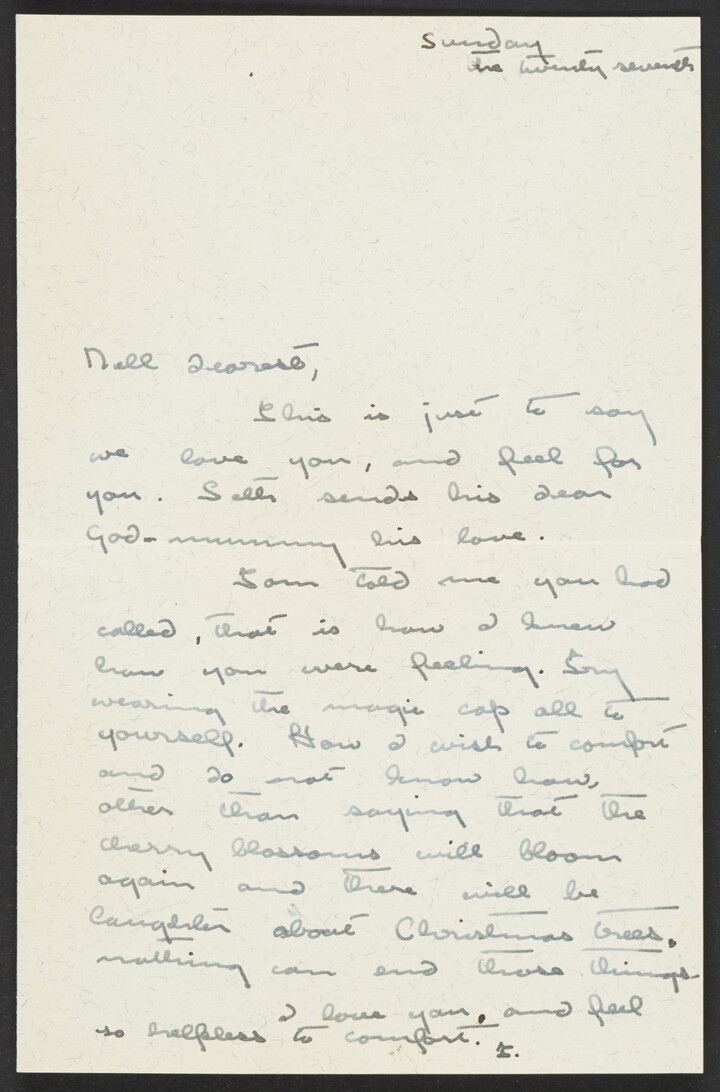 Sunday
the twenty seventh
Nell dearest,
This is just to say
we love you, and feel for
you. Seth sends his dear
God-mummy his love.
Tom told me you had
called, that is how I knew
how you were feeling. Try
wearing the magic cap all to
yourself. How I wish to comfort
and do not know how,
other than saying that the
cherry blossoms will bloom
again and there will be
laughter about Christmas trees,
nothing can end those things.
I love you, and feel
so helpless to comfort.